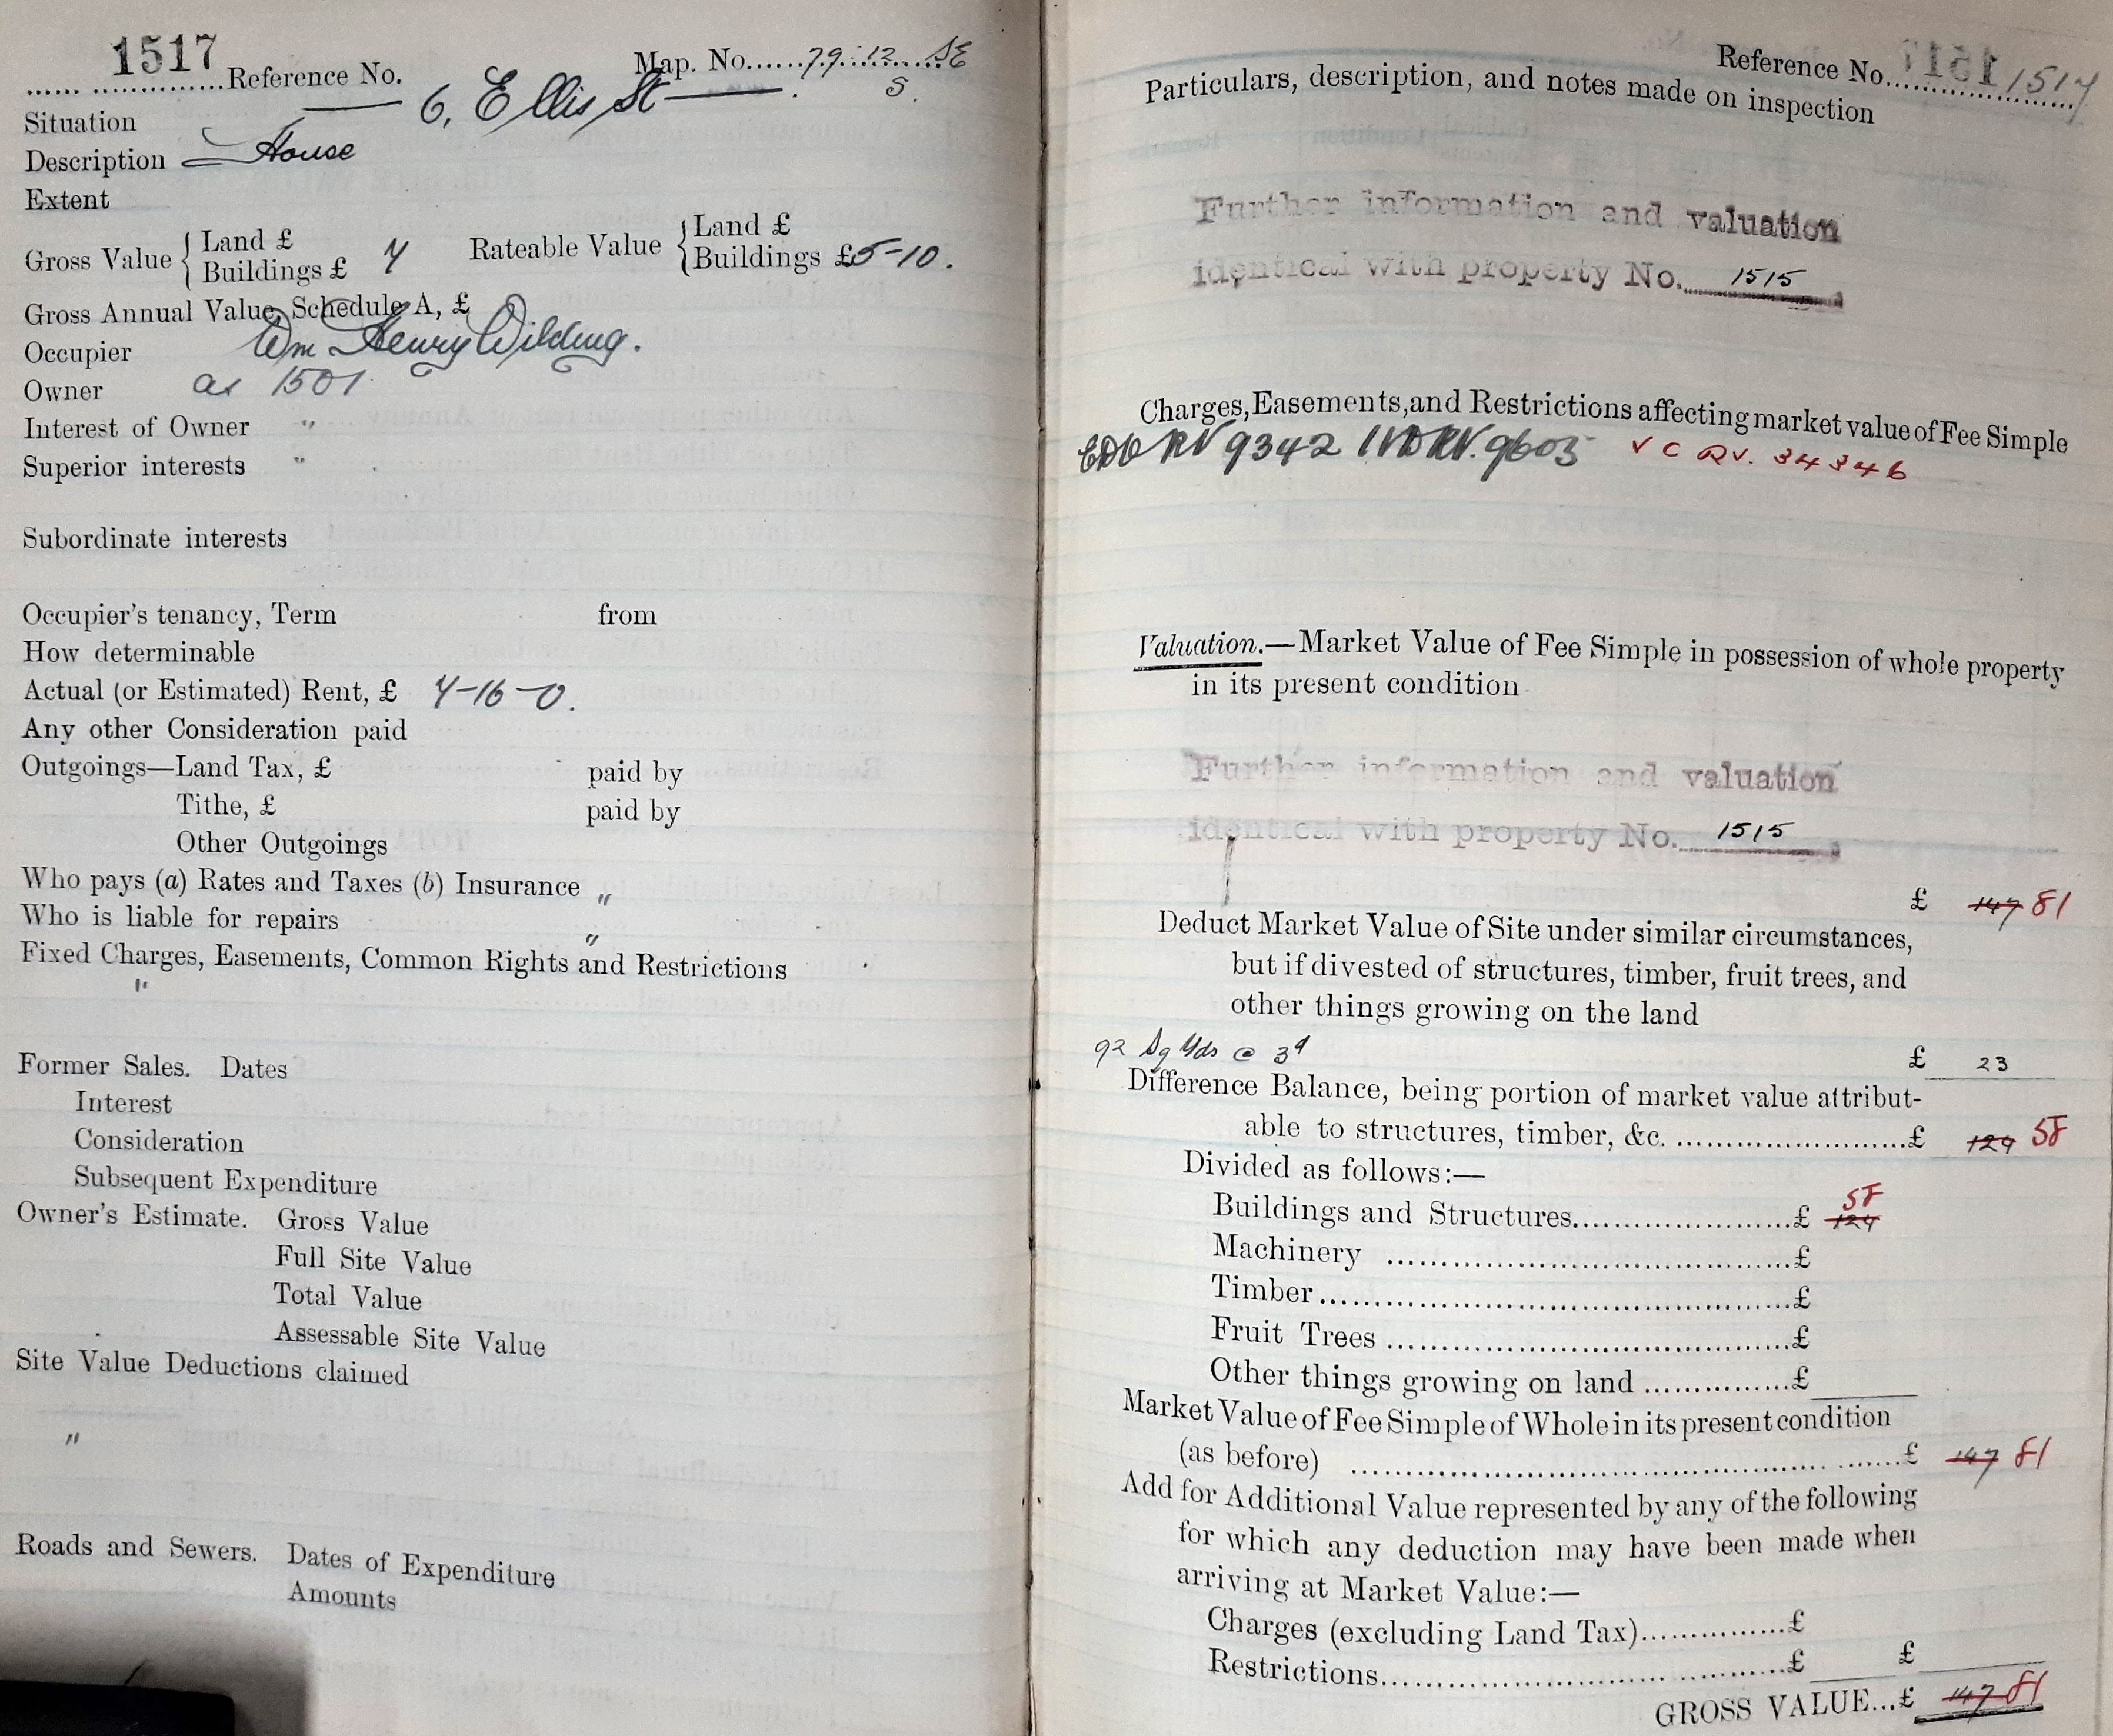 1517 Reference No. Map. No. 79.12. SE
S.
Situation 6, Ellis St
Description House
Extent
Gross Value { Land £
Buildings £ 7 Rateable Value { Land £
Buildings £5-10.
Gross Annual Value, Schedule A, £
Occupier Wm Henry Wilding.
Owner as 1501
Interest of Owner "
Superior interests "
Subordinate interests
Occupier's tenancy, Term from
How determinable
Actual (or Estimated) Rent, £ 7-16-0.
Any other Consideration paid
Outgoings—Land Tax, £ paid by
Tithe, £ paid by
Other Outgoings
Who pays (a) Rates and Taxes (b) Insurance "
Who is liable for repairs "
Fixed Charges, Easements, Common Rights and Restrictions
"
Former Sales. Dates
Interest
Consideration
Subsequent Expenditure
Owner's Estimate. Gross Value
Full Site Value
Total Value
Assessable Site Value
Site Value Deductions claimed
"
Roads and Sewers. Dates of Expenditure
Amounts
Reference No. 1517
Particulars, description, and notes made on inspection
Further information and valuation
identical with property No. 1515
Charges, Easements, and Restrictions affecting market value of Fee Simple
RV 9342 IVD RV. 9603 V C RV. 34346
Valuation.—Market Value of Fee Simple in possession of whole property
in its present condition
Further information and valuation
identical with property No. 1515
£ 147 81
Deduct Market Value of Site under similar circumstances,
but if divested of structures, timber, fruit trees, and
other things growing on the land
92 Sq Yds @ 3d £ 23
Difference Balance, being portion of market value attribut-
able to structures, timber, &c. £ 124 58
Divided as follows:—
Buildings and Structures £ 124 58
Machinery £
Timber £
Fruit Trees £
Other things growing on land £
Market Value of Fee Simple of Whole in its present condition
(as before) £ 147 81
Add for Additional Value represented by any of the following
for which any deduction may have been made when
arriving at Market Value:—
Charges (excluding Land Tax) £
Restrictions £ £
GROSS VALUE...£ 147 81